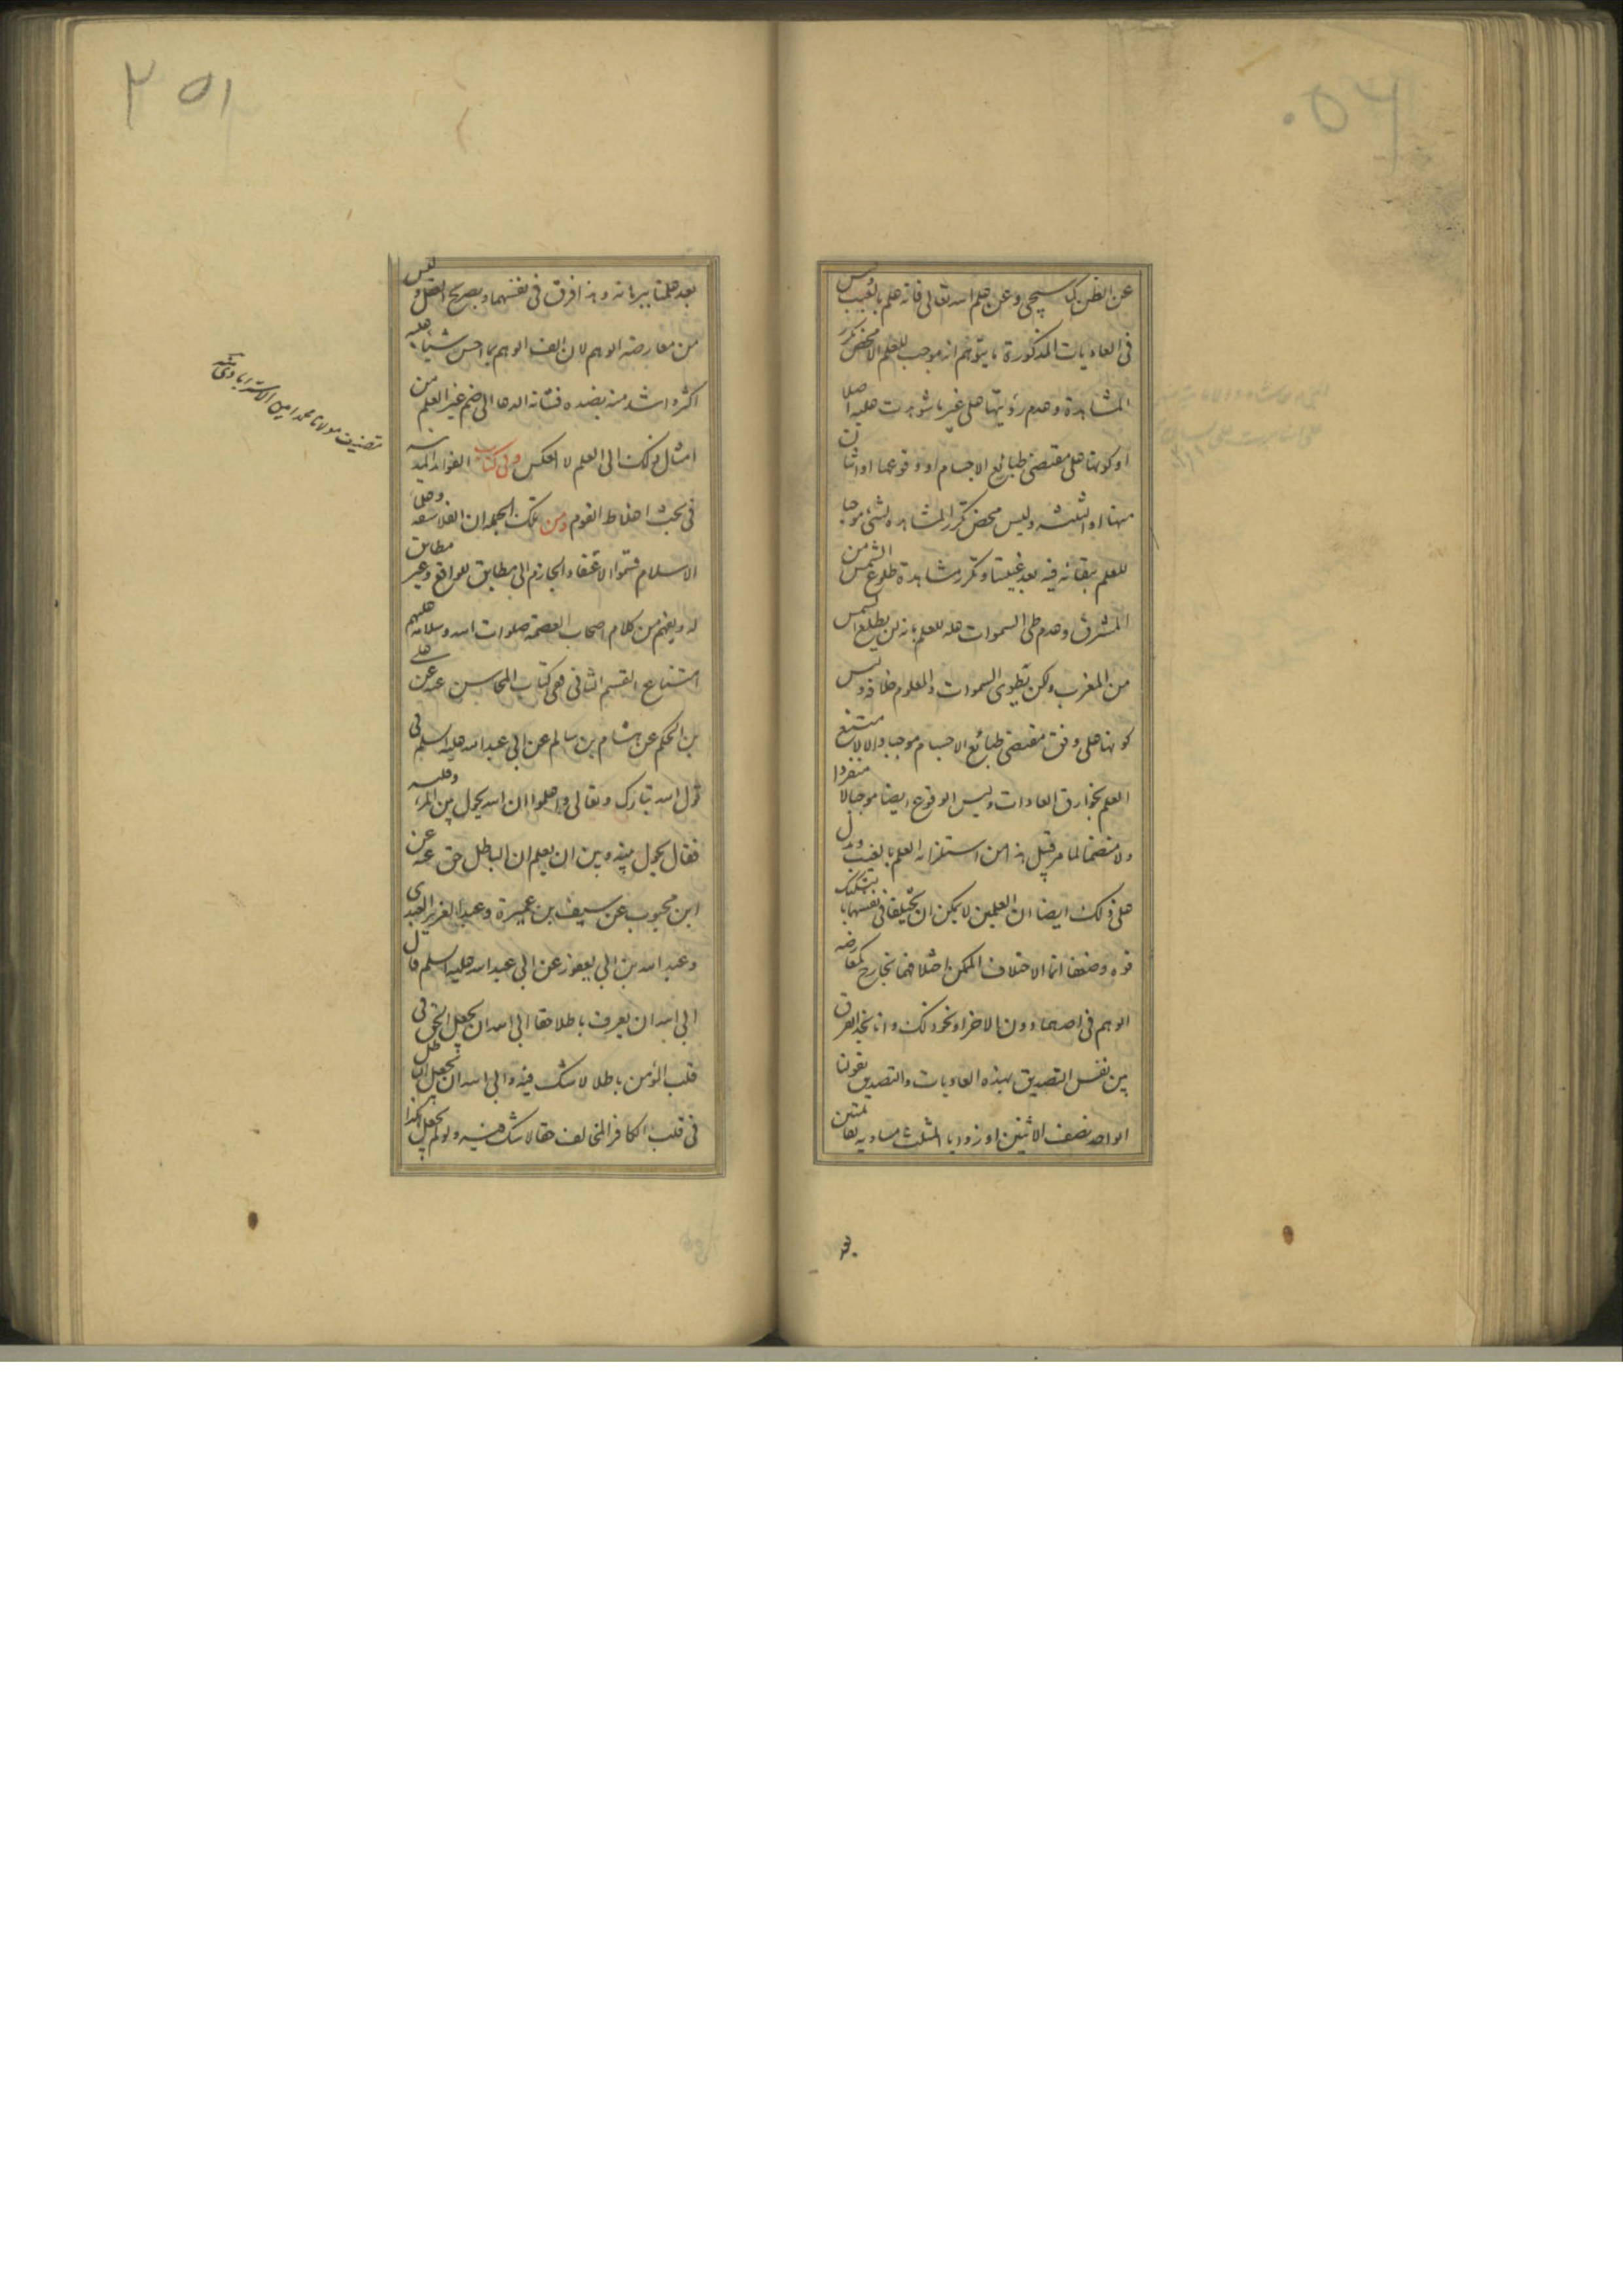 عن الظن كما سيجي وعن علم الله تعالى فانه علم بالغيب وليس
في العاديات المذكورة ما يتوهم انه موجب للعلم الا محض تكرر
المشاهدة وعدم رؤيتها على غير ما شوهدت عليه اصلا
او كونها على مقتضى طبائع الاجسام او وقوعها او اثنان
منها او الثلثة وليس محض تكرر المشاهدة لشئ موجبا
للعلم ببقائه فيه بعد غيبتنا وتكرر مشاهدة طلوع الشمس من
المشرق وعدم طي السموات علة للعلم بانه لن يطلع الشمس
من المغرب ولن تطوى السموات والمعلوم خلافه وليس
كونها على وفق مقتضى طبائع الاجسام موجبا والا لامتنع
العلم بخوارق العادات وليس الوقوع ايضا موجبا لا منفردا
ولا منضما لما مر قبيل هذا من استلزامه العلم بالغيب ويدل
على ذلك ايضا ان العلمين لا يمكن ان يختلفا في نفسهما بتشكيك
قوة وضعفا انما الاختلاف الممكن اختلافهما بخارج كمعارضة
الوهم في احدهما دون الاخر او نحو ذلك وانا نجد الفرق
بين نفس التصديق بهذه العاديات والتصديق بقولنا
الواحد نصف الاثنين او زوايا المثلث مساوية لقائمتين
بعد علمنا ببرهانه وهذا فرق في نفسهما وبصريح العقل وليس
من معارضة الوهم لان الف الوهم بما احس شيئا عليه
اكثر واشد منه بضده فشانه الدعا الى ضم غير العلم من
امثال ذلك الى العلم لا العكس وفي كتاب الفوائد المدنية
في بحث اغلاط القوم ومن تلك الجملة ان الفلاسفة وعلماء
الاسلام قسموا الاعتقاد الجازم الى مطابق للواقع وغير مطابق
له ويفهم من كلام اصحاب العصمة صلوات الله وسلامه عليهم
امتناع القسم الثاني ففي كتاب المحاسن عنه عن علي
بن الحكم عن هشام بن سالم عن ابي عبد الله عليه السلم في
قول الله تبارك وتعالى واعلموا ان الله يحول بين المرء وقلبه
فقال يحول بينه وبين ان يعلم ان الباطل حق عنه عن
ابن محبوب عن سيف بن عميرة وعبد العزيز العبدي
وعبد الله بن ابي يعفور عن ابي عبد الله عليه السلم قال
ابى الله ان يعرف باطلا حقا ابى الله ان يجعل الحق في
قلب المؤمن باطلا لا شك فيه وابى الله ان يجعل الباطل
في قلب الكافر المخالف حقا لا شك فيه ولو لم يجعل هكذا
تصنيف مولانا محمد امين الاسترابادي